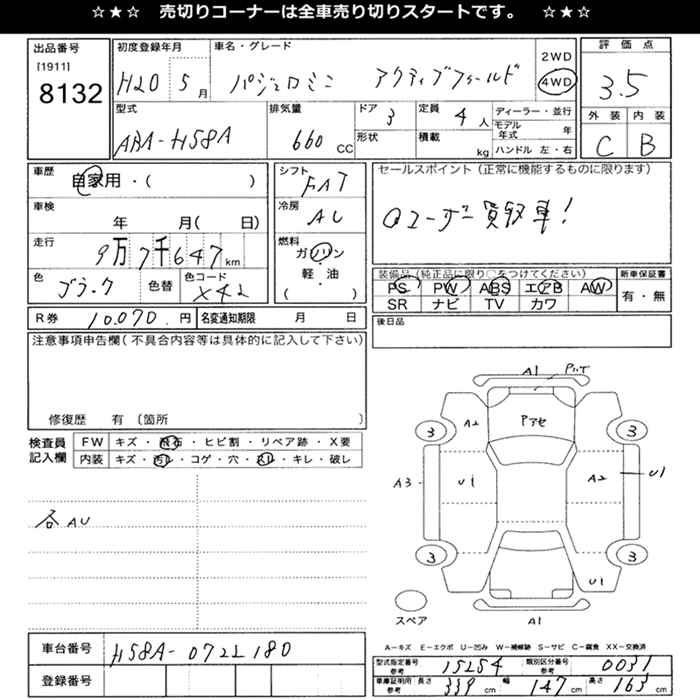 ☆ ★ ☆　売切りコーナーは全車売り切りスタートです。　☆ ★ ☆
出品番号
[1911]
8132
初度登録年月
H20 5月
車名・グレード
パジェロミニ アクティブフィールド
2WD
4WD
評価点
3.5
外装 内装
C B
型式
ABA-H58A
排気量
660 CC
ドア 3
形状
定員 4人
積載 kg
ディーラー・並行
モデル年式 年
ハンドル 左・右
車歴 自家用・( )
車検 年 月( 日)
走行 9万7千647km
色 ブラック 色替 色コード X42
シフト FAT
冷房 AC
燃料
ガソリン
・
軽・油
( )
セールスポイント(正常に機能するものに限ります)
ユーザー買取車!
装備品(純正品に限り○をつけてください)
PS PW ABS エアB AW
SR ナビ TV カワ
新車保証書
有・無
R券 10,070 円 名変通知期限 月 日
後日品
注意事項申告欄(不具合内容等は具体的に記入して下さい)
修復歴 有 〔箇所 〕
検査員記入欄
FW キズ・飛石・ヒビ割・リペア跡・X要
内装 キズ・汚レ・コゲ・穴・スレ・キレ・破レ
各AU
A1
3 A2 Pアセ 3
A3 U1 A2 U1
3 3
U1
スペア A1
A-キズ E-エクボ U-凹み W-補修跡 S-サビ C-腐食 XX-交換済
車台番号 H58A-0722180
登録番号
型式指定番号 参考 15254 類別区分番号 参考 0031
車庫証明用 参考 長さ 339 cm 幅 147 cm 高さ 163 cm